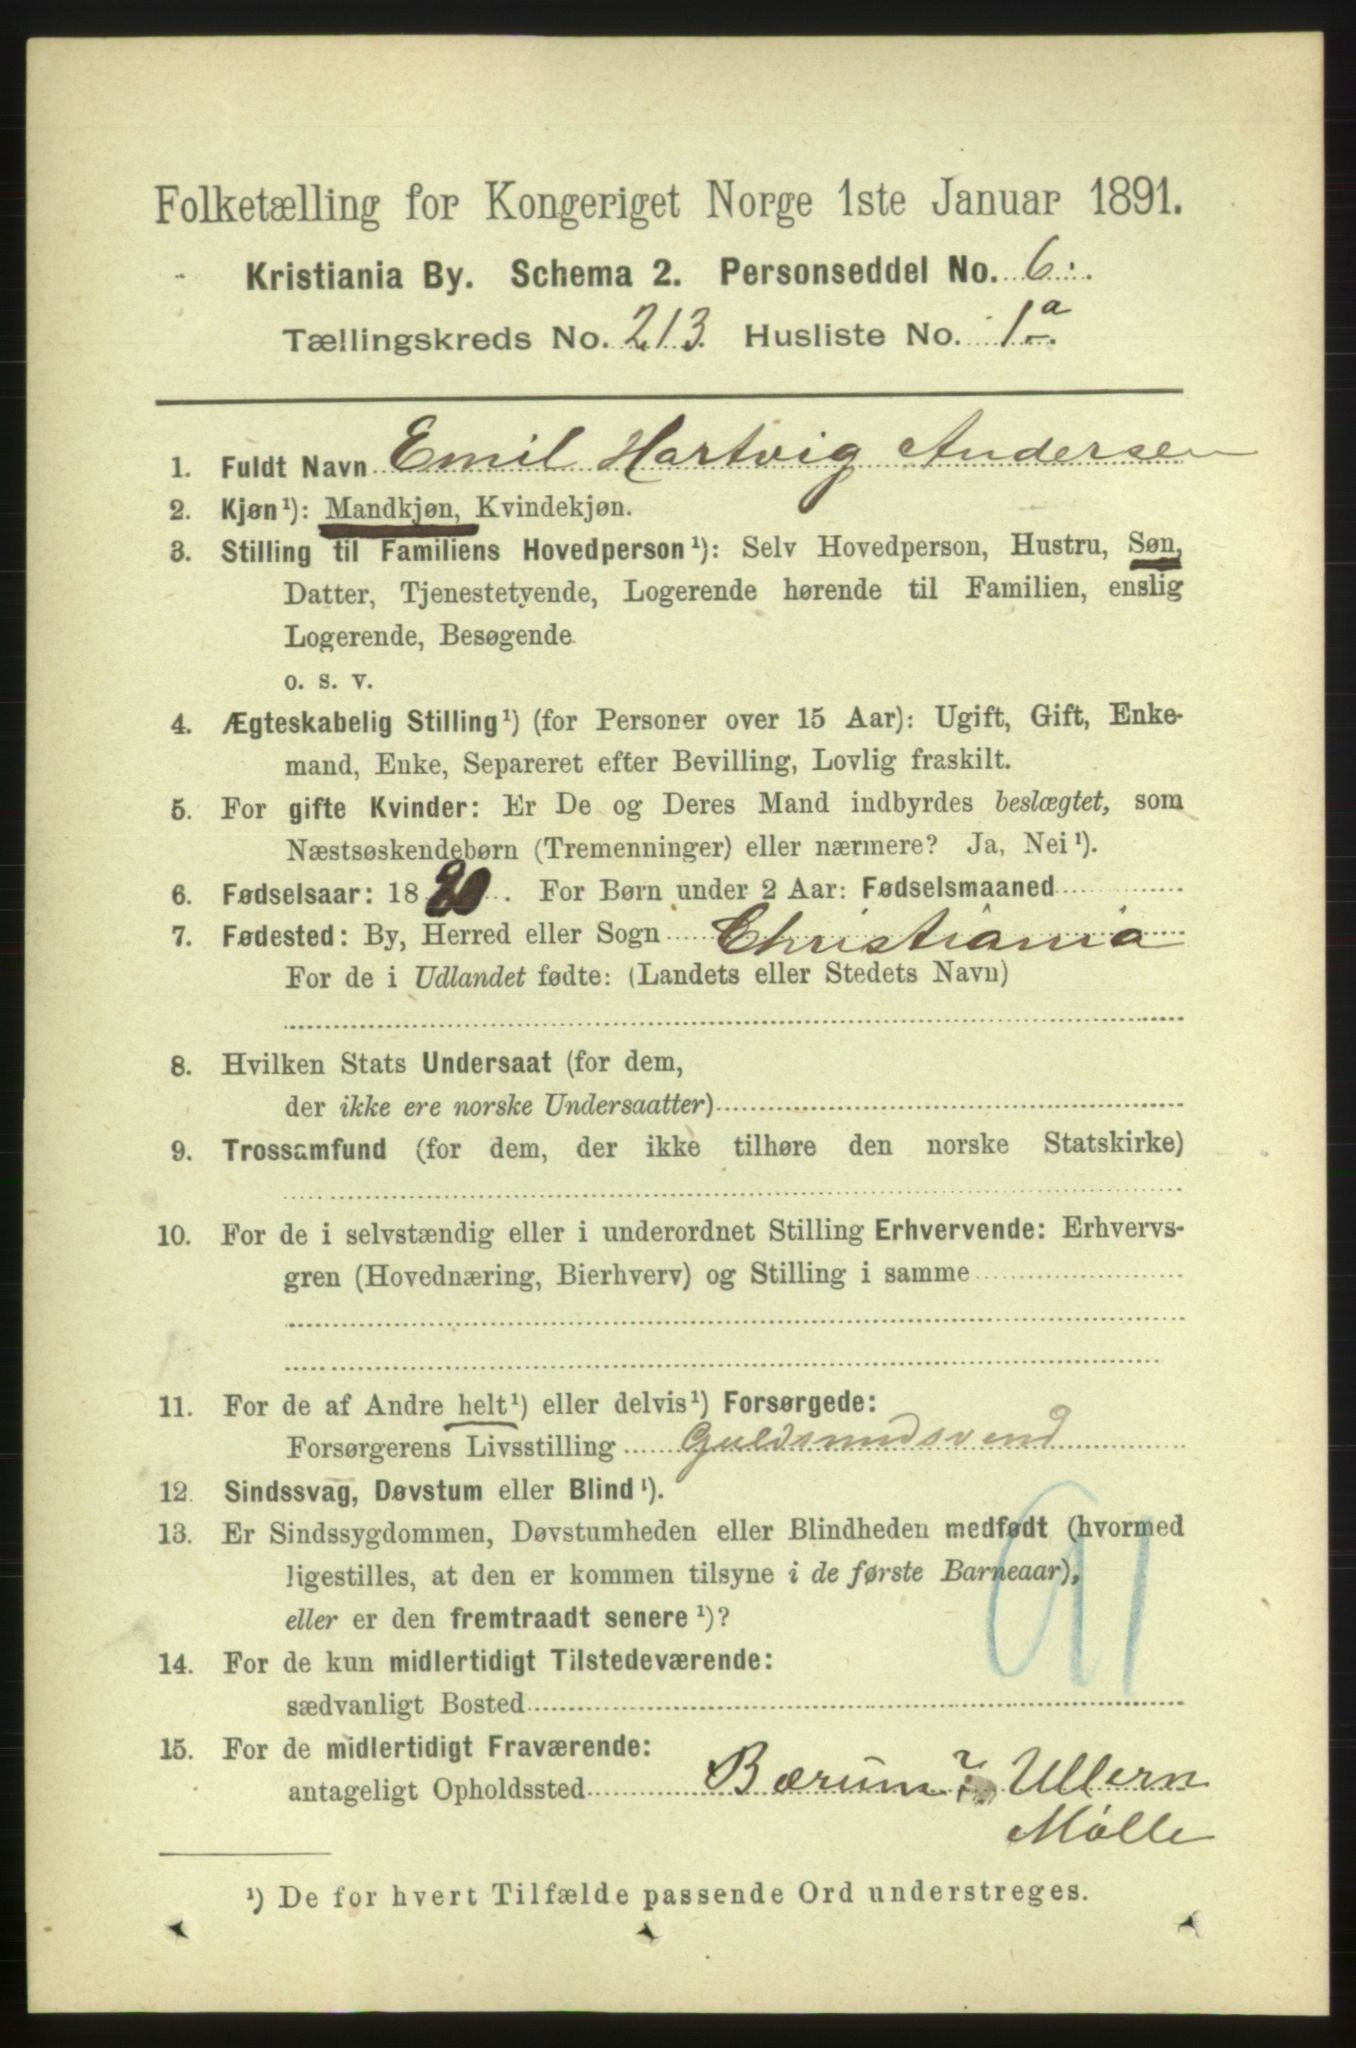 Folketælling for Kongeriget Norge 1ste Januar 1891.
Kristiania By. Schema 2. Personseddel No. 6.
Tællingskreds No. 213. Husliste No. 1a
1. Fuldt Navn Emil Hartvig Andersen
2. Kjøn¹): Mandkjøn, Kvindekjøn.
3. Stilling til Familiens Hovedperson¹): Selv Hovedperson, Hustru, Søn,
Datter, Tjenestetyende, Logerende hørende til Familien, enslig
Logerende, Besøgende
o. s. v.
4. Ægteskabelig Stilling¹) (for Personer over 15 Aar): Ugift, Gift, Enke-
mand, Enke, Separeret efter Bevilling, Lovlig fraskilt.
5. For gifte Kvinder: Er De og Deres Mand indbyrdes beslægtet, som
Næstsøskendebørn (Tremenninger) eller nærmere? Ja, Nei¹).
6. Fødselsaar: 18 . For Børn under 2 Aar: Fødselsmaaned
7. Fødested: By, Herred eller Sogn Christiania
For de i Udlandet fødte: (Landets eller Stedets Navn)
8. Hvilken Stats Undersaat (for dem,
der ikke ere norske Undersaatter)
9. Trossamfund (for dem, der ikke tilhøre den norske Statskirke)
10. For de i selvstændig eller i underordnet Stilling Erhvervende: Erhvervs-
gren (Hovednæring, Bierhverv) og Stilling i samme
11. For de af Andre helt¹) eller delvis¹) Forsørgede:
Forsørgerens Livsstilling Guldsmedsvend
12. Sindssvag, Døvstum eller Blind¹).
13. Er Sindssygdommen, Døvstumheden eller Blindheden medfødt (hvormed
ligestilles, at den er kommen tilsyne i de første Barneaar),
eller er den fremtraadt senere¹)?
14. For de kun midlertidigt Tilstedeværende:
sædvanligt Bosted
15. For de midlertidigt Fraværende:
antageligt Opholdssted Bærum? Ullern
Mølle
¹) De for hvert Tilfælde passende Ord understreges.